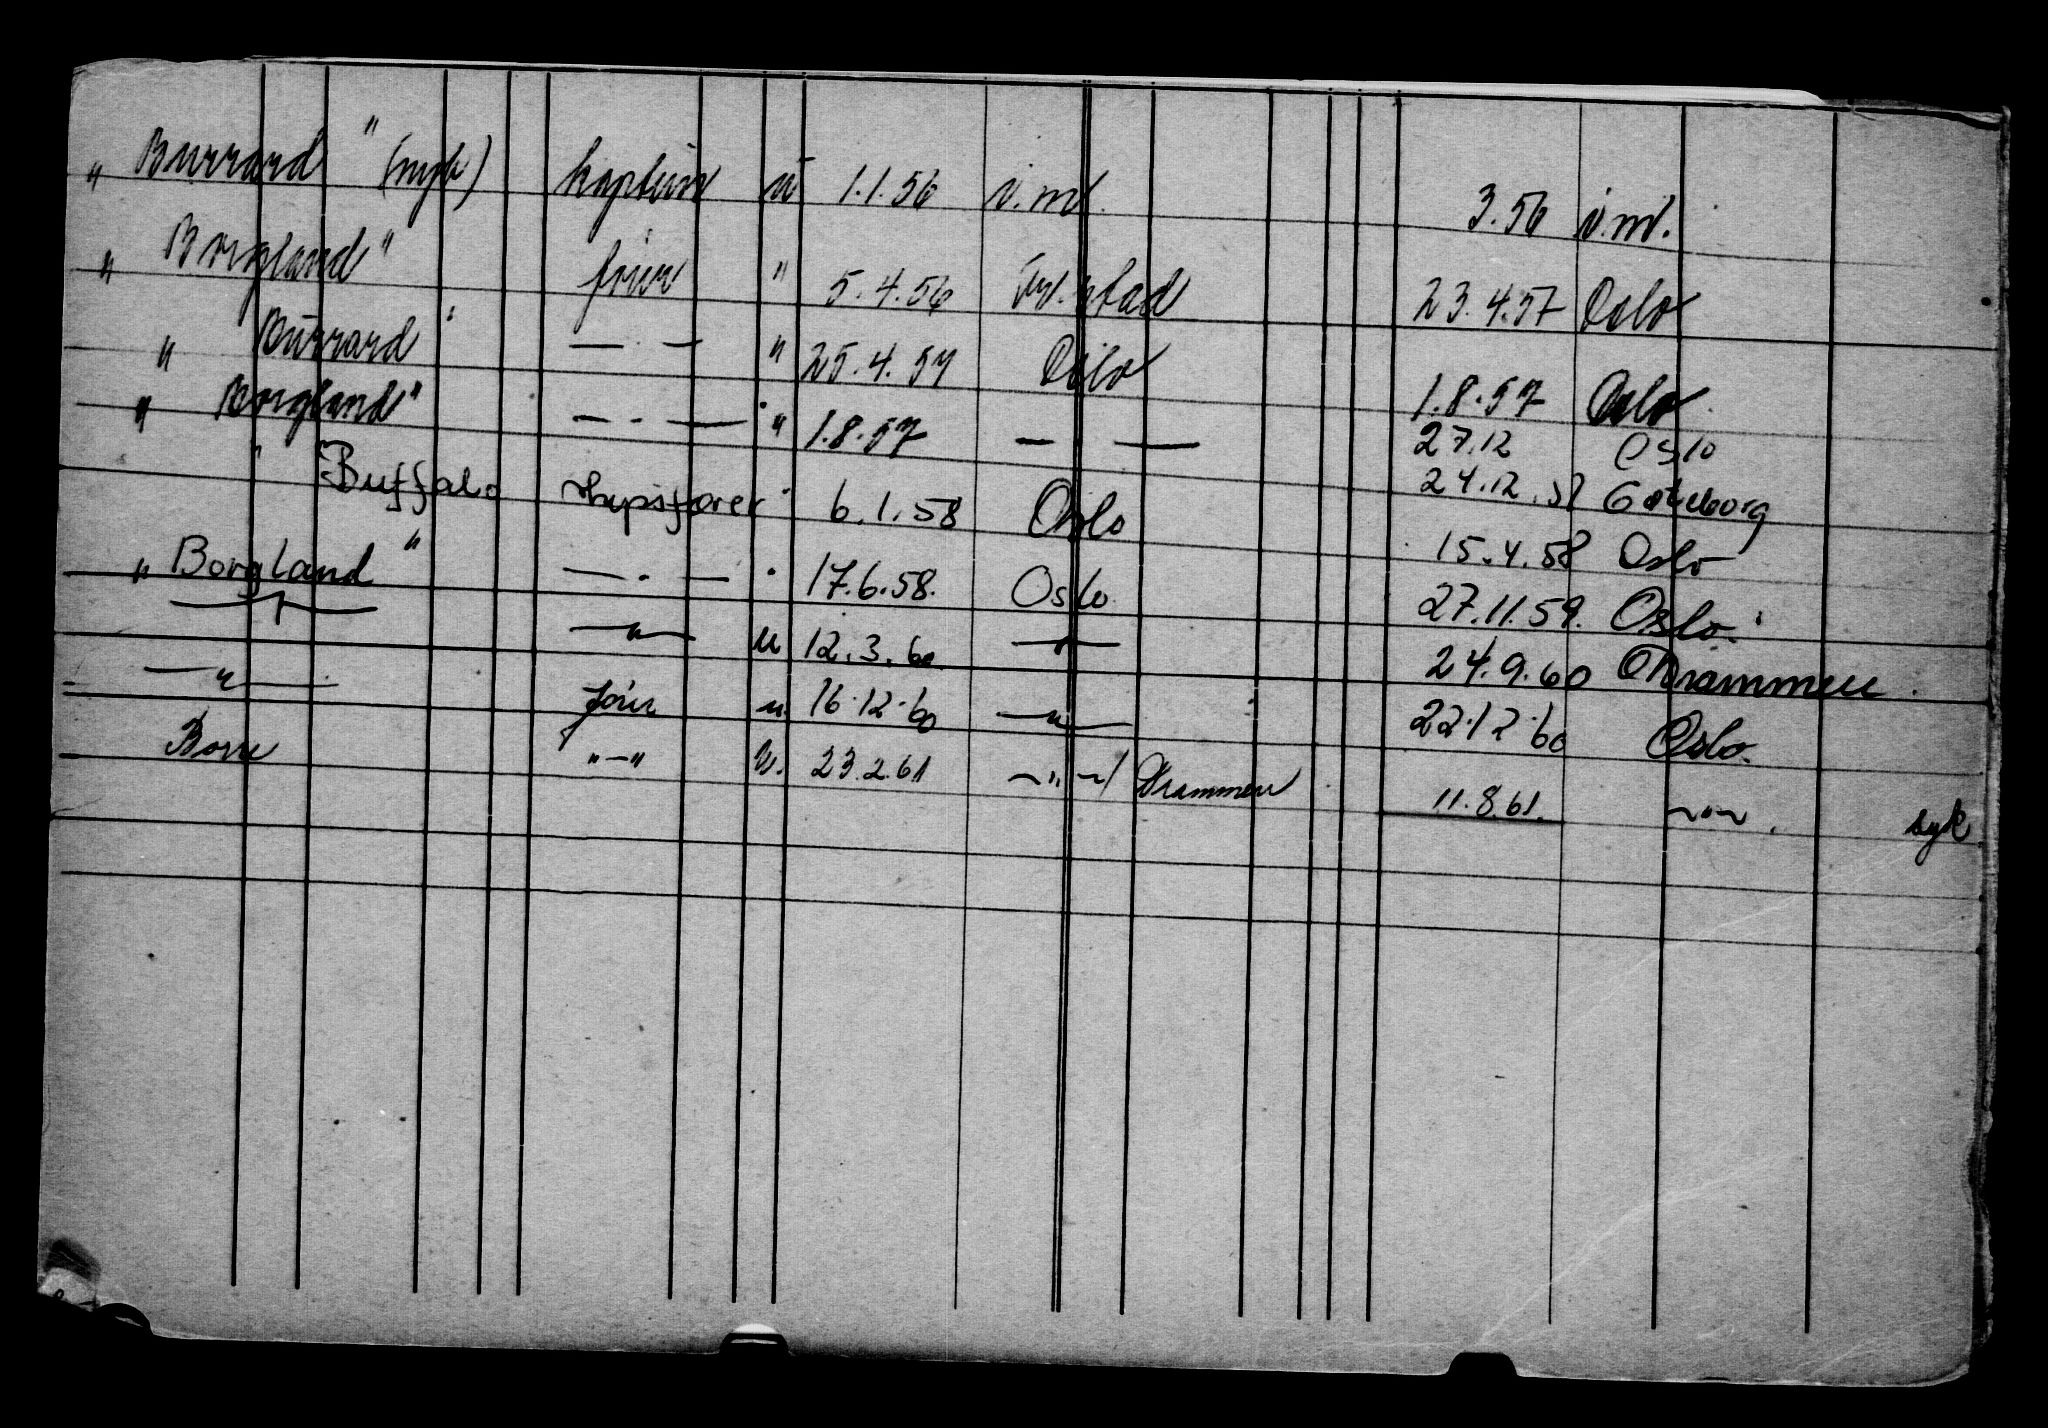 " Burrard " (myk) kaptein u 1.1.56 i.ml. 3.56 i.ml.
" Borgland " fører " 5.4.56 Fr.stad 23.4.57 Oslo
" Burrard " — . — " 25.4.57 Oslo 1.8.57 Oslo
" Borgland " — . — " 1.8.57 — — 27.12 Oslo
24.12.57 Göteborg
" Buffalo skipsfører " 6.1.58 Oslo 15.4.58 Oslo
" Borgland " — . — " 17.6.58. Oslo 27.11.59. Oslo.
—"— —"— u 12.3.60 —"— 24.9.60 Drammen.
—"— fører u 16.12.60 —"— 22.12.60 Oslo.
Borre "—" u. 23.2.61 —"—/ Drammen 11.8.61. —"—. syk